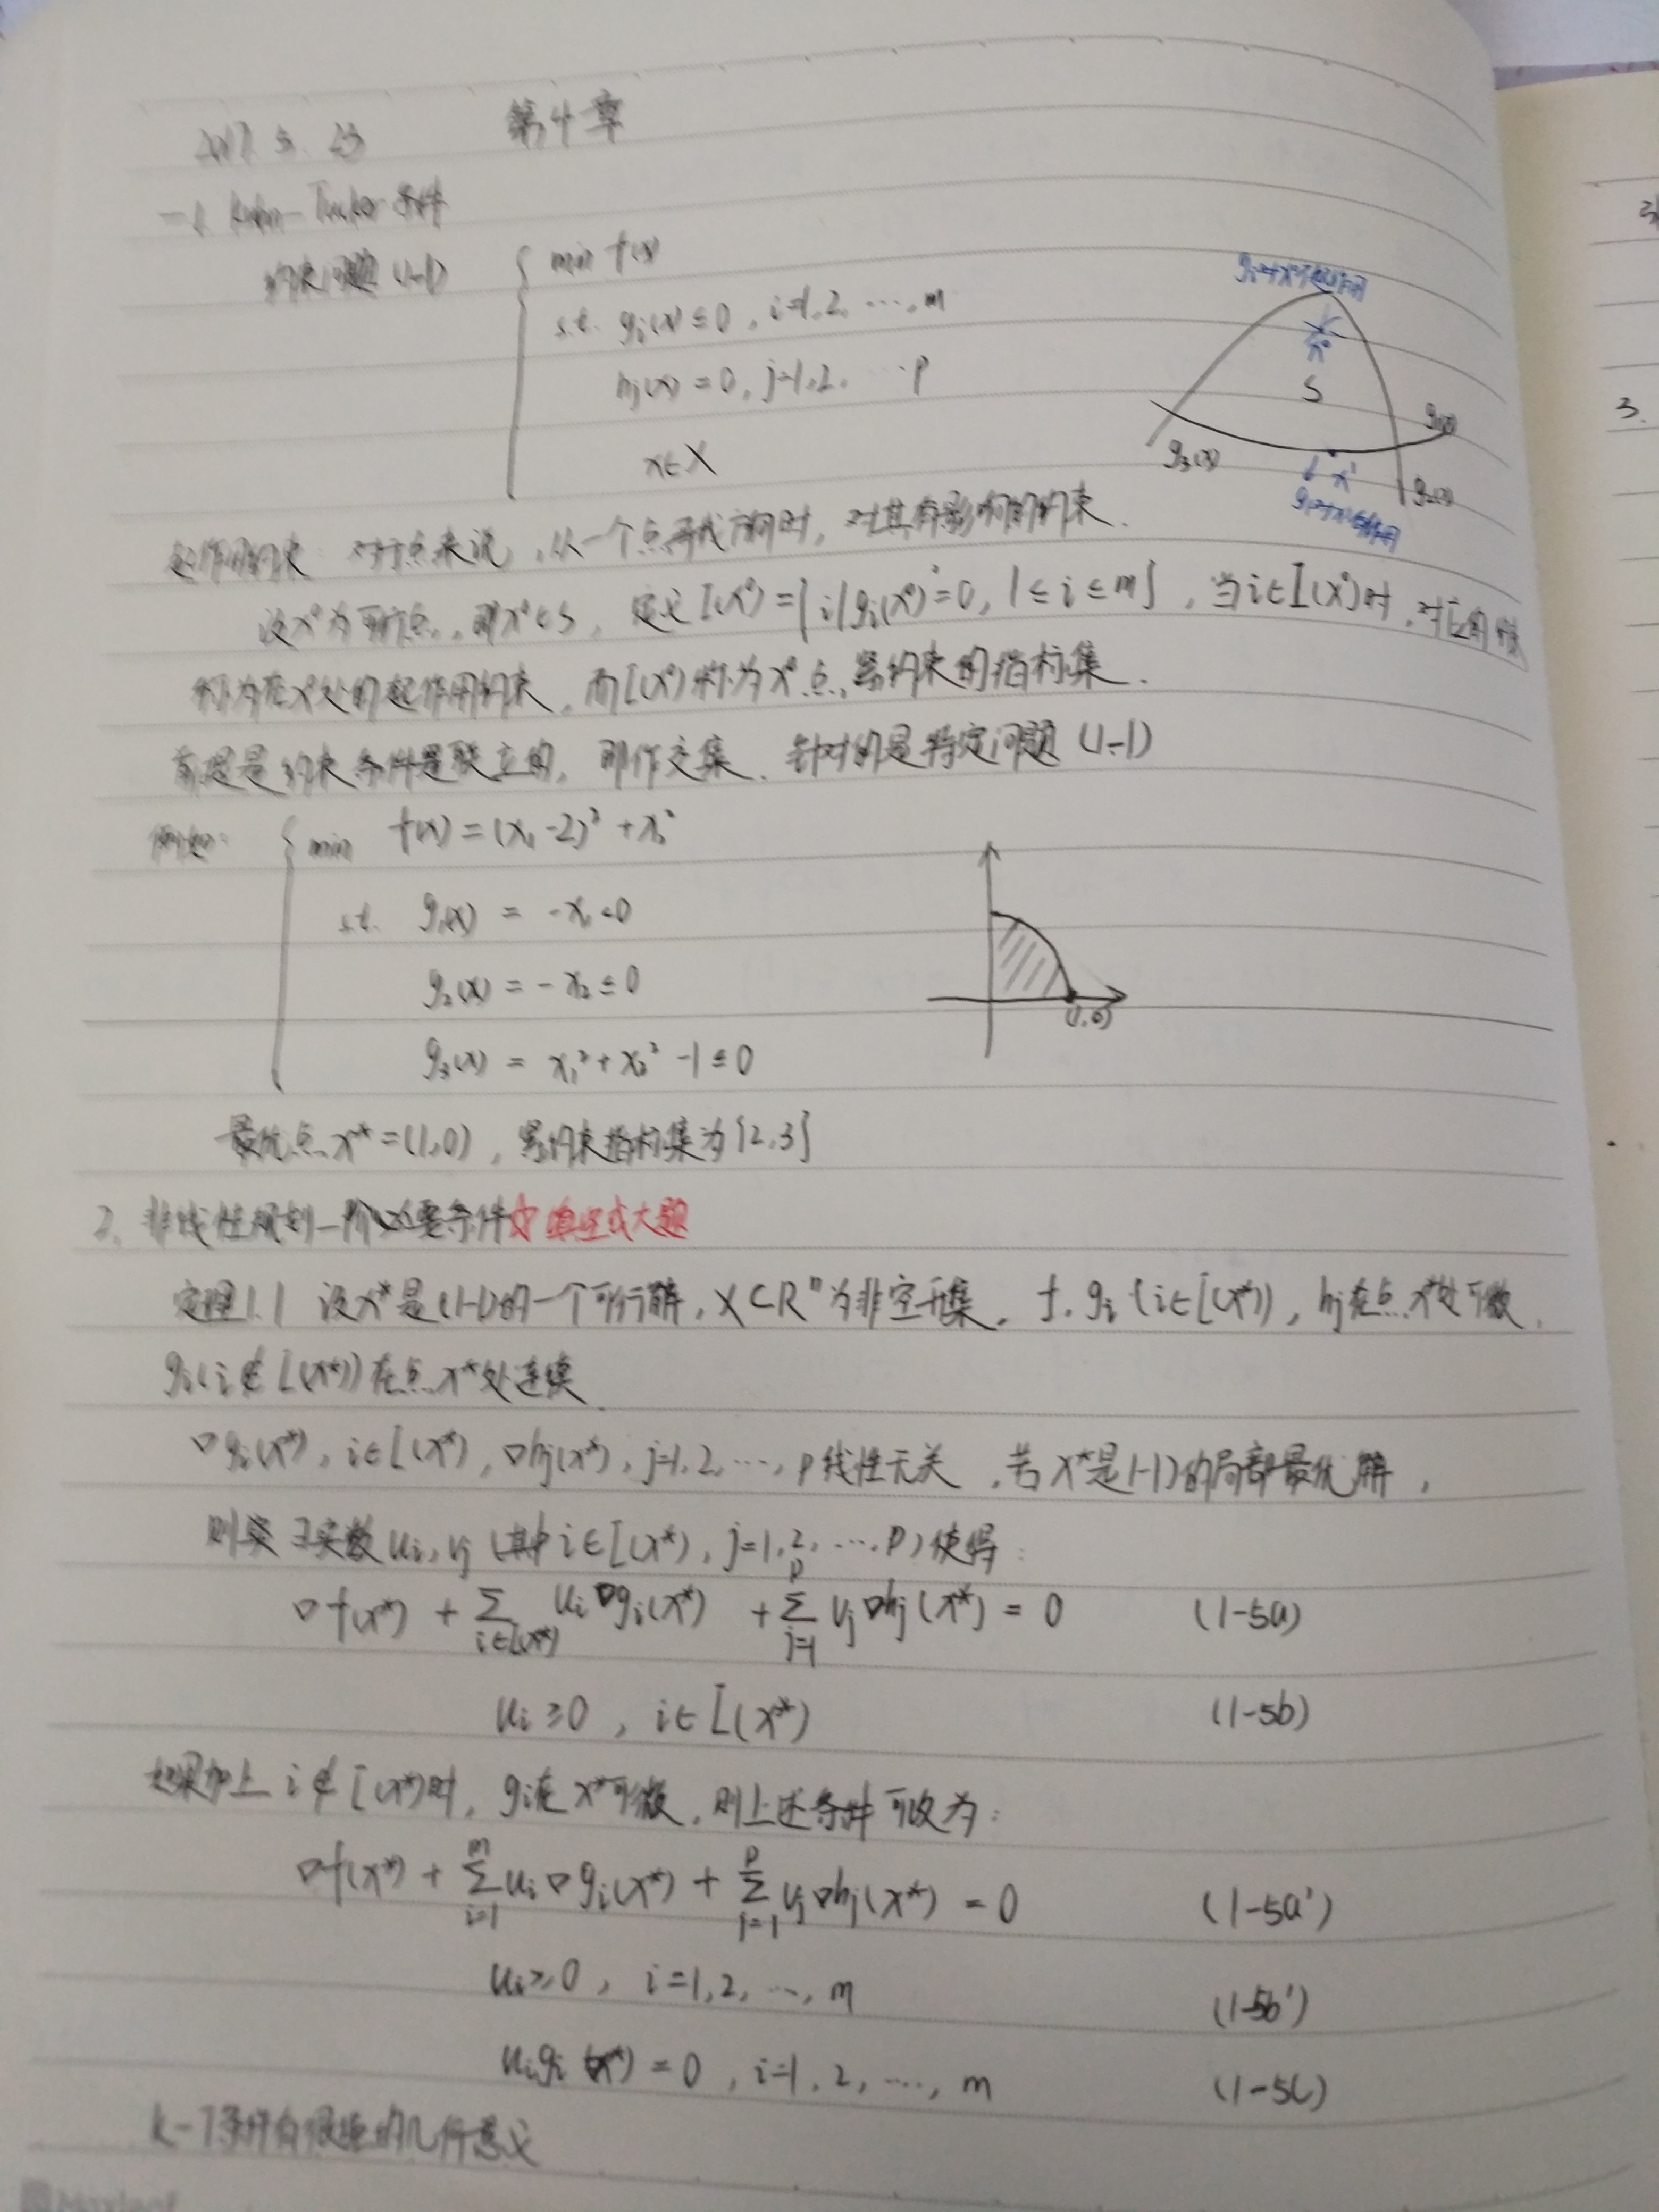 2017. 5. 23 第4章
一、1. Kuhn-Tucker条件
约束问题(1-1) min f(x)
s.t. gᵢ(x) ≤ 0, i=1,2,…,m
hⱼ(x) = 0, j=1,2,…p
x∈X
x⁰
S
g₁(x)
g₃(x)
x¹
g₂(x)
起作用约束 对于点来说,从一个点再找方向时,对其有影响的约束.
设x⁰为可行点,即x⁰∈S, 定义I(x⁰)={i|gᵢ(x⁰)=0, 1≤i≤m}, 当i∈I(x⁰)时,对应的约束
称为在x⁰处的起作用约束,而I(x⁰)称为x⁰点紧约束的指标集.
前提是约束条件是联立的,即作交集. 针对的是特定问题(1-1)
例如: min f(x) = (x₁-2)² + x₂²
s.t. g₁(x) = -x₁≤0
g₂(x) = -x₂≤0
g₃(x) = x₁²+x₂²-1≤0
(1,0)
最优点x*=(1,0), 紧约束指标集为{2,3}
2、非线性规划一阶必要条件☆填空或大题
定理1.1 设x*是(1-1)的一个可行解, X⊂Rⁿ为非空开集, f, gᵢ(i∈I(x*)), hⱼ在点x*处可微,
gᵢ(i∉I(x*))在点x*处连续
∇gᵢ(x*), i∈I(x*), ∇hⱼ(x*), j=1,2,…,p线性无关,若x*是1-1)的局部最优解,
则 ∃实数uᵢ,vⱼ(其中i∈I(x*), j=1,2,…,p)使得:
∇f(x*) + ∑_{i∈I(x*)} uᵢ∇gᵢ(x*) + ∑_{j=1}^{p} vⱼ∇hⱼ(x*) = 0 (1-5a)
uᵢ≥0, i∈I(x*) (1-5b)
如果加上i∉I(x*)时, gᵢ在x*可微,则上述条件可改为:
∇f(x*) + ∑_{i=1}^{m} uᵢ∇gᵢ(x*) + ∑_{j=1}^{p} vⱼ∇hⱼ(x*) = 0 (1-5a')
uᵢ≥0, i=1,2,…,m (1-5b')
uᵢgᵢ(x*) = 0, i=1,2,…,m (1-5c)
K-T条件有很强的几何意义